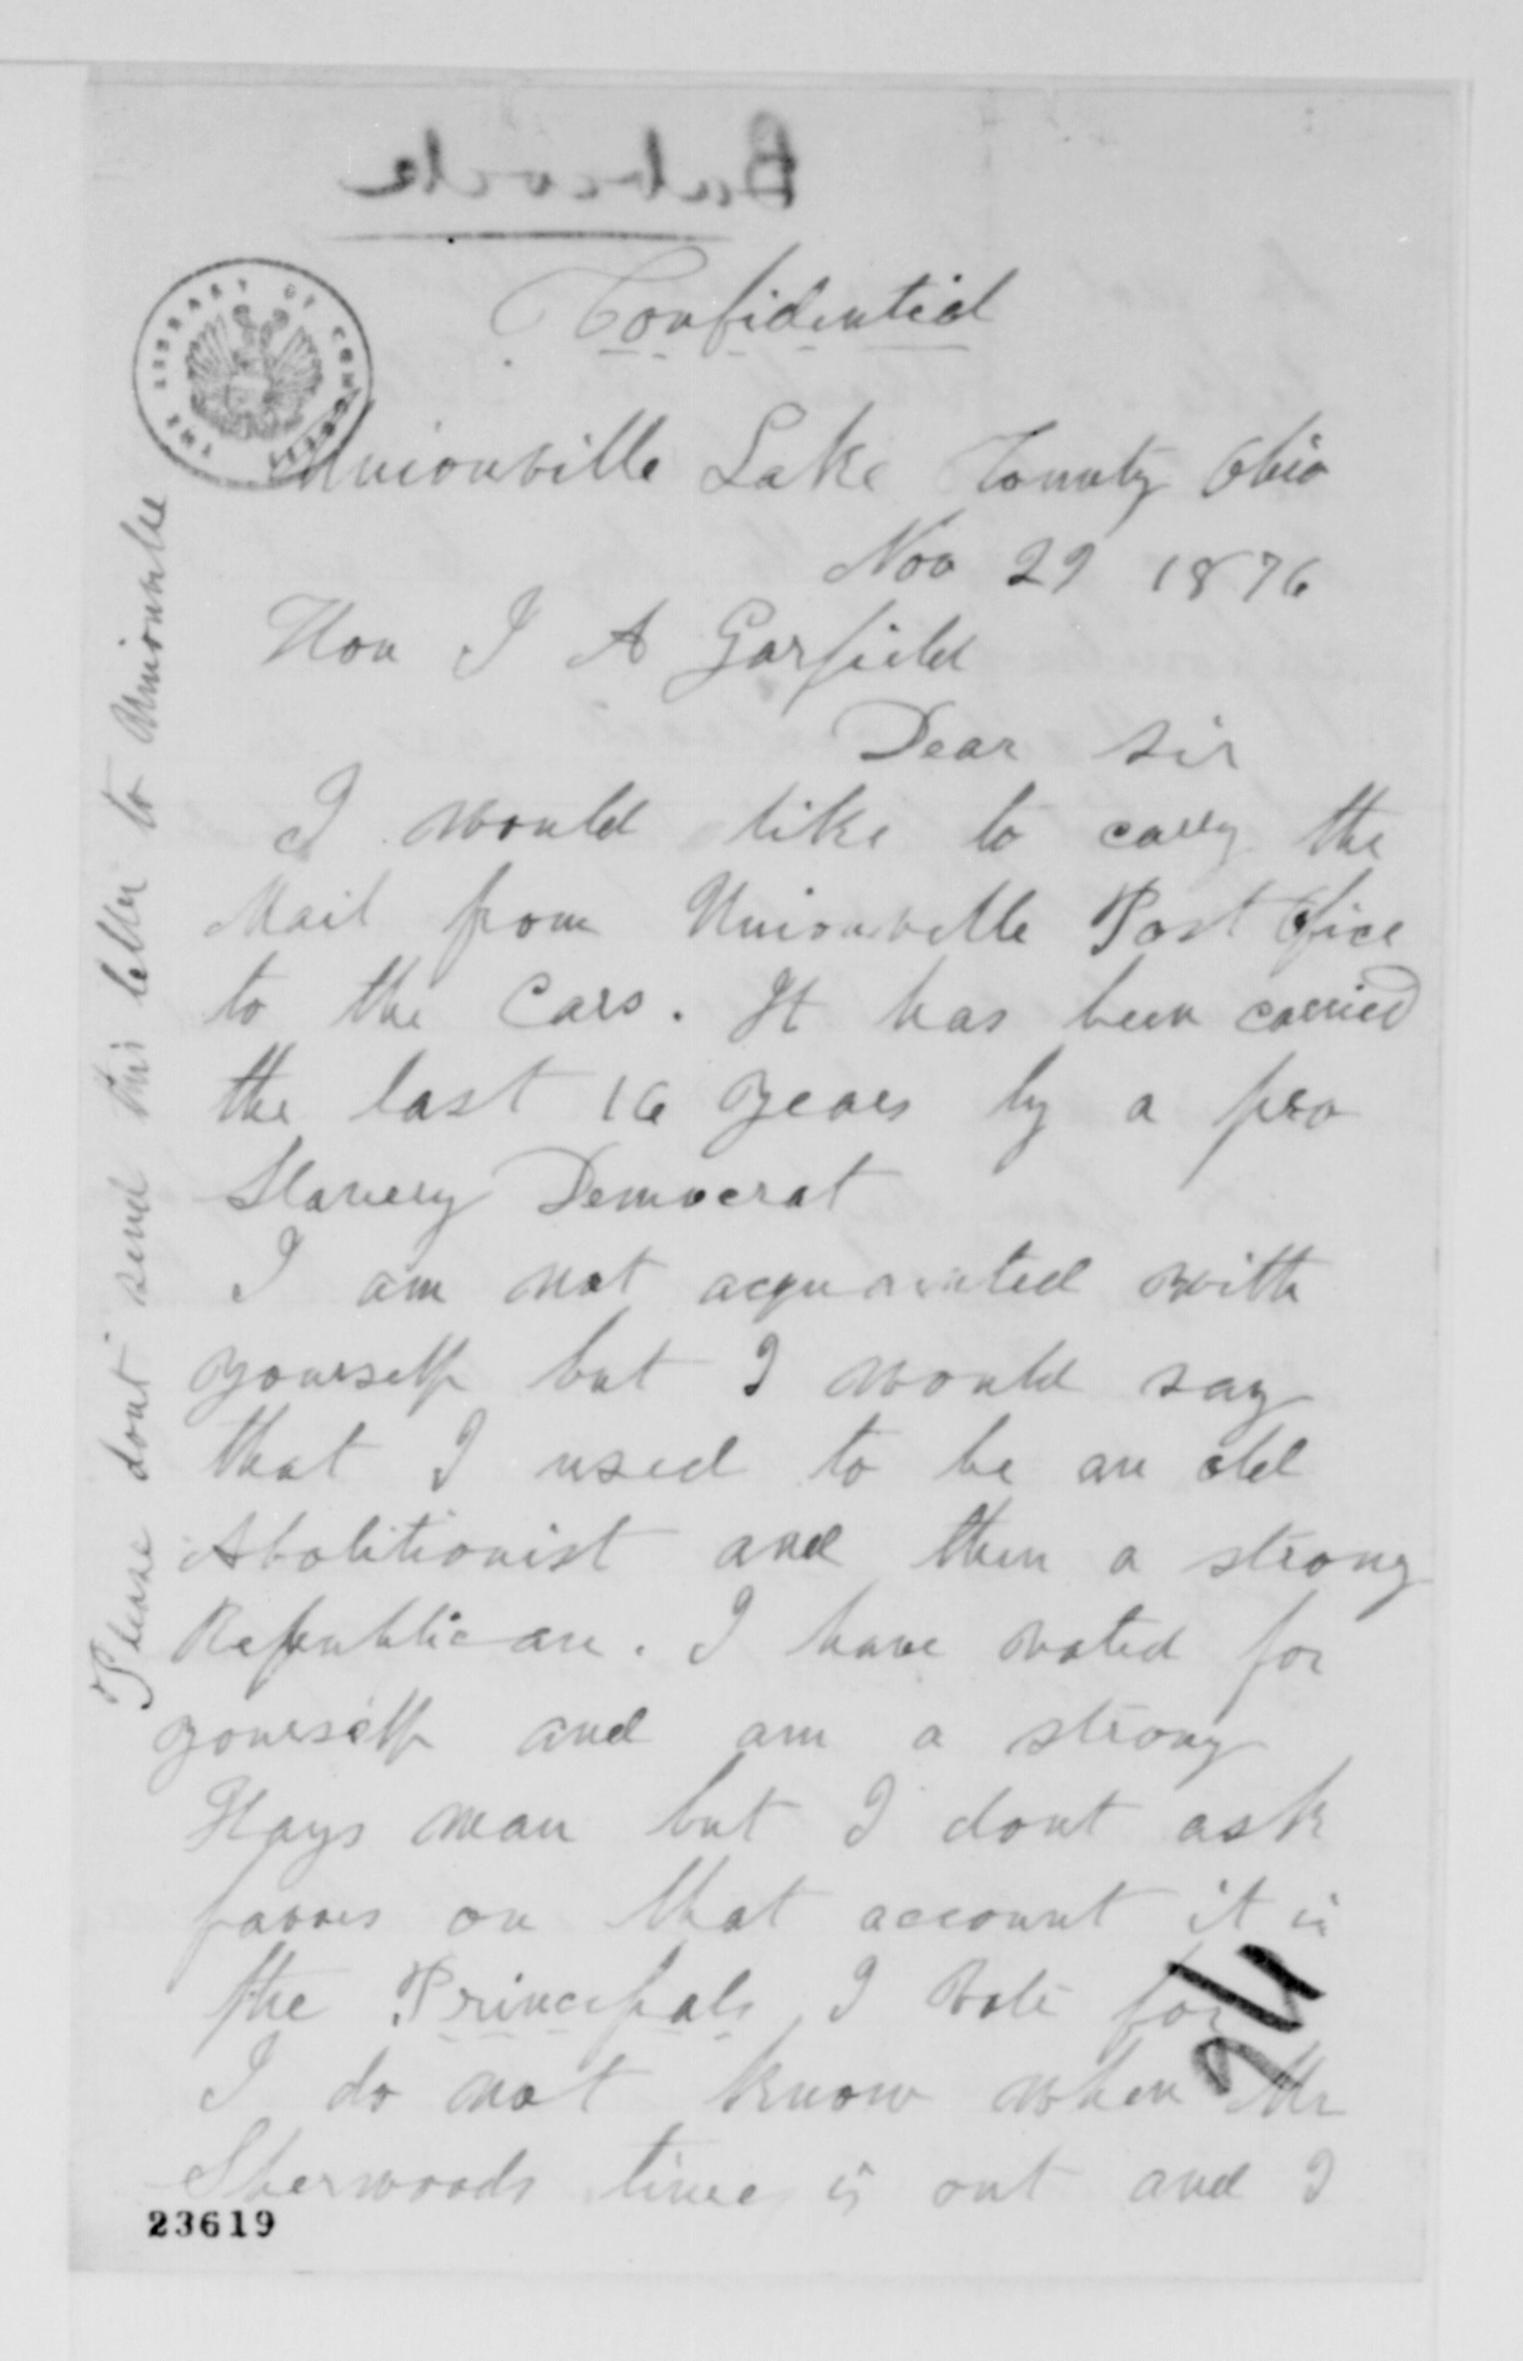 Babcock
Confidential
THE LIBRARY OF CONGRESS
Unionville Lake County Ohio
Nov 29 1876
Hon J A Garfield
Dear sir
I would like to carry the
Mail from Unionville Post Ofice
to the Cars. It has been carried
the last 16 years by a pro
Slavery Democrat
I am not acquainted with
yourself but I would say
that I used to be an old
Abolitionist and then a strong
Republican. I have voted for
yourself and am a strong
Hays man but I dont ask
favors on that account it is
the Principals I vote for
I do not know when Mr
Sherwoods time is out and I
Please dont send this letter to Unionville
23619